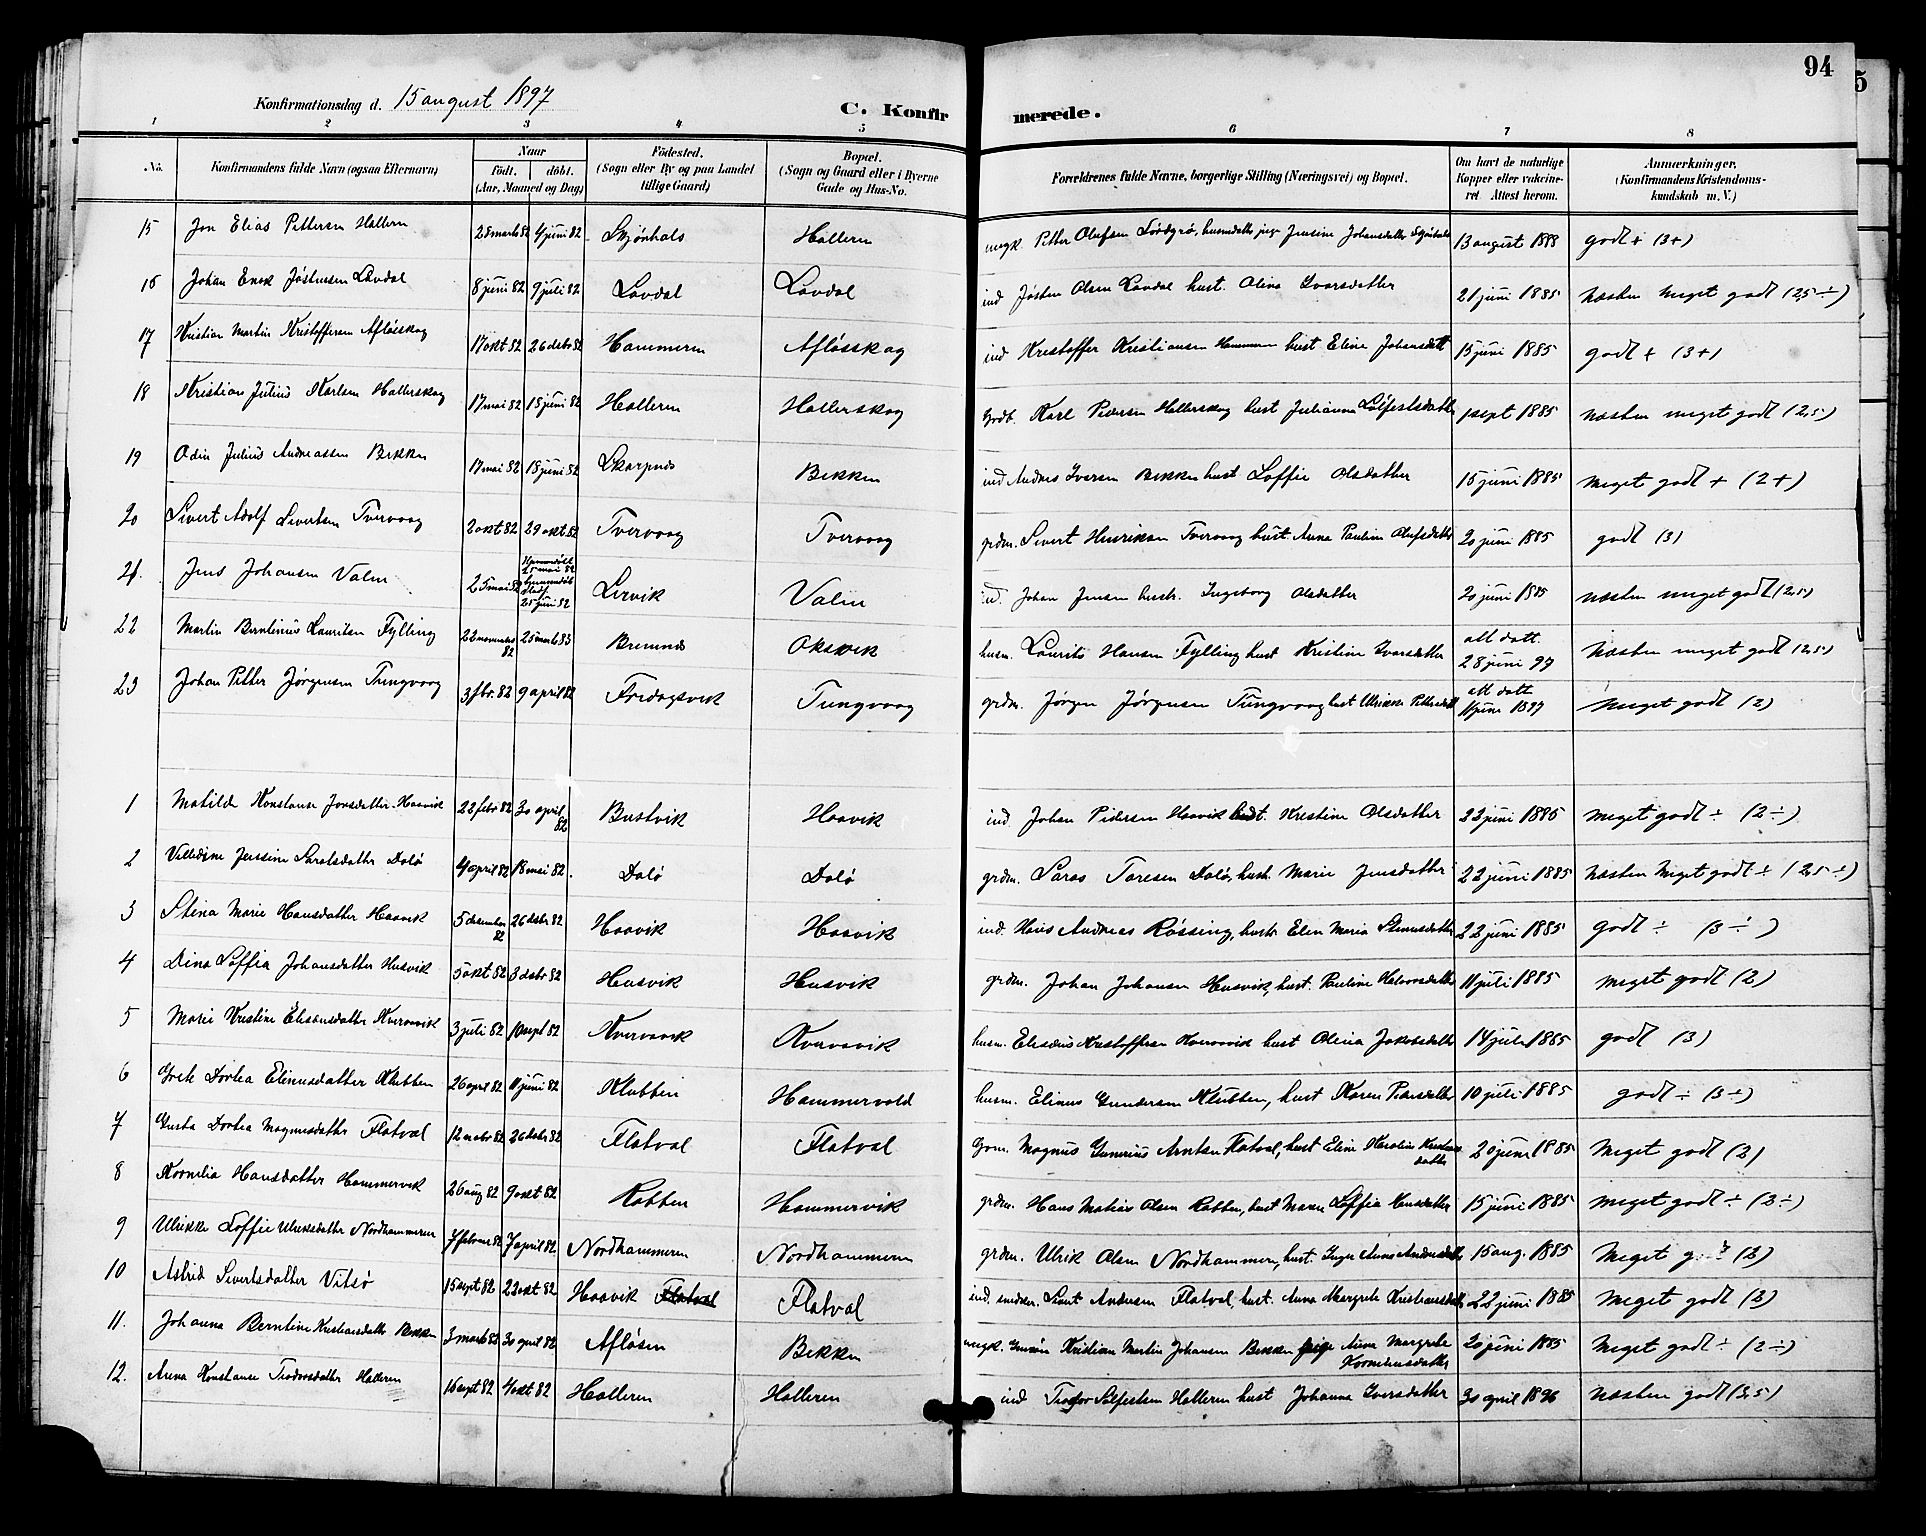 94
Konfirmationsdag d. 15 august 1897
C. Konfirmerede.
1 2 3 4 5 6 7 8
No. Konfirmandens fulde Navn (ogsaa Efternavn) Naar født. døbt. (Aar, Maaned og Dag) Fødested. (Sogn eller By og paa Landet tillige Gaard) Bopæl. (Sogn og Gaard eller i Byerne Gade og Hus-No. Forældrenes fulde Navne, borgerlige Stilling (Næringsvei) og Bopæl. Om havt de naturlige Kopper eller vakcineret Attest herom. Anmærkninger. (Konfirmandens Kristendomskundskab m. V.)
15 Jon Elias Pettersen Halleren 28 marts 82 4 juni 82 Skjønhals Halleren ungk. Petter Olufsen pige Jensine Johansdatter 13 august godt + (3+)
16 Johan Enok Jøstensen Løvdal 8 juni 82 9 juli 82 Løvdal Løvdal ind Jøsten Olsen Løvdal hust. Olina Ivarsdatter 21 juni 1885 Næsten meget godt (2,5 ÷)
17 Kristian Martin Kristoffersen Afløsskag 17 okt 82 26 debr 82 Hammeren Afløsskag ind Kristoffer Kristiansen Hammeren hust Eline Johansdatt 15 juni 1885 godt + (3+)
18 Kristian Julius Karlsen Hallerskag 17 mai 82 18 juni 82 Halleren Hallerskag Karl Pedersen Hallerskag hust Julianna Sølfestsdatter 1 sept 1885 næsten meget godt (2,5)
19 Odin Julius Andreassen Bekken 17 mai 82 18 juni 82 Skarpnes Bekken ind Andreas Iversen Bekken hust Soffie Olsdatter 15 juni 1885 meget godt + (2+)
20 Sivert Adolf Sivertsen Tvervaag 2 okt 82 29 okt 82 Tvervaag Tvervaag grdm. Sivert Henriksen Tvervaag hust Anna Pauline Olufsdatter 20 juni 1885 godt (3)
21. Jens Johansen Valen 25 mai 82 Hjemmedøbt 25 mai 82 25 juni 82 Lervik Valen ind. Johan Jensen hustr. Ingeborg Olsdatter 20 juni 1885 næsten meget godt (2,5)
22 Martin Berntinius Lauritsen Fylling 22 november 82 25 marts 83 Bremnes Oksvik husm. Laurits Hansen Fylling hust Kristine Ivarsdatter att datt. 28 juni 97 Næsten meget godt (2,5)
23 Johan Petter Jørgensen Tungvaag 3 fbr. 82 9 april 82 Fredagsvik Tungvaag grdm. Jørgen Jørgensen Tungvaag hust Ulrikke Pettersdatt att datt 11 juni 1897 Meget godt (2)
1 Matilde Konstanse Jonsdatter Haavik 22 febr 82 30 april 82 Bustvik Haavik ind. Johan Pedersen Haavik hust. Kristine Olsdatter 22 juni 1885 meget godt ÷ (2÷)
2 Jensine Sarasdatter Dalø 4 april 82 18 mai 82. Dalø Dalø grdm. Saras Taresen Dalø, hust. Marie Jensdatter 22 juni 1885 Næsten Meget godt ÷ (2,5 ÷)
3 Stina Marie Hansdatter Haavik 5 desember 82 26 debr 82 Haavik Haavik ind. Hans Andreas Røssing, hustr Elen Maria Stinusdatter 22 juni 1885 godt ÷ (3 ÷)
4 Dina Soffia Johansdatter Husvik 5 okt 82 3 debr 82 Husvik Husvik grdm. Johan Johansen Husvik, hust. Pauline Halvorsdatter 11 juli 1885 meget godt (2)
5 Marie Kristine Eliseusdatter Kvernvik 3 juli 82 10 sept 82 Kvernvik Kvernvik husm. Eliseus Kristoffersen Kvernvik hust Olina Jakobsdatter 14 juli 1885 godt (3)
6 Grete Dortea Elinusdatter Klubben 26 april 82 11 juni 82 Klubben Hammervold husm. Elinus Gundersen Klubben, hust Karen Pedersdatter 10 juli 1885 godt ÷ (3÷)
7 Gusta Dortea Magnusdatter Flatval 12 nobr 82 26 debr 82 Flatval Flatval Gom. Magnus Gunerius Arntsen Flatval, hust Eline Karoline Kristiansdatter 20 juni 1885 Meget godt (2)
8 Kornelia Hansdatter Hammervik 26 aug 82 9 okt 82 Rabben Hammervik grdm. Hans Matias Olsen Rabben, hust Maren Soffia Hansdatter 15 juni 1885 meget godt ÷ (2÷)
9 Ulrikke Soffie Ulriksdatter Nordhammeren 7 februar 82 7 april 82 Nordhammeren Nordhammeren grdm. Ulrik Olsen Nordhammeren, hust. Inger Anna Andersdatter 15 aug. 1885 Meget (2)
10 Astrid Sivertsdatter Vitsø 15 sept 82 22 okt 82 Haavik Flatval Flatval ind. snedker. Sivert Andersen Flatval, hust. Anna Margrete Kristiansdatter 22 juni 1885 Meget godt (2)
11. Johanna Berntine Kristiansdatter Bekken 3 marts 82 30 april 82 Afløsen Bekken ungk. Kristian Martin Johansen Bekken pige Anna Margrete Korneliusdatter 20 juni 1885 Meget godt ÷ (2÷)
12. Anna Konstanse Teodorsdatter Halleren 16 sept 82 4 okt 82 Halleren Halleren ind Teodor Sølfestsen Halleren hust Johanna Iversdatter 30 april 1896 Næsten godt (3,5)